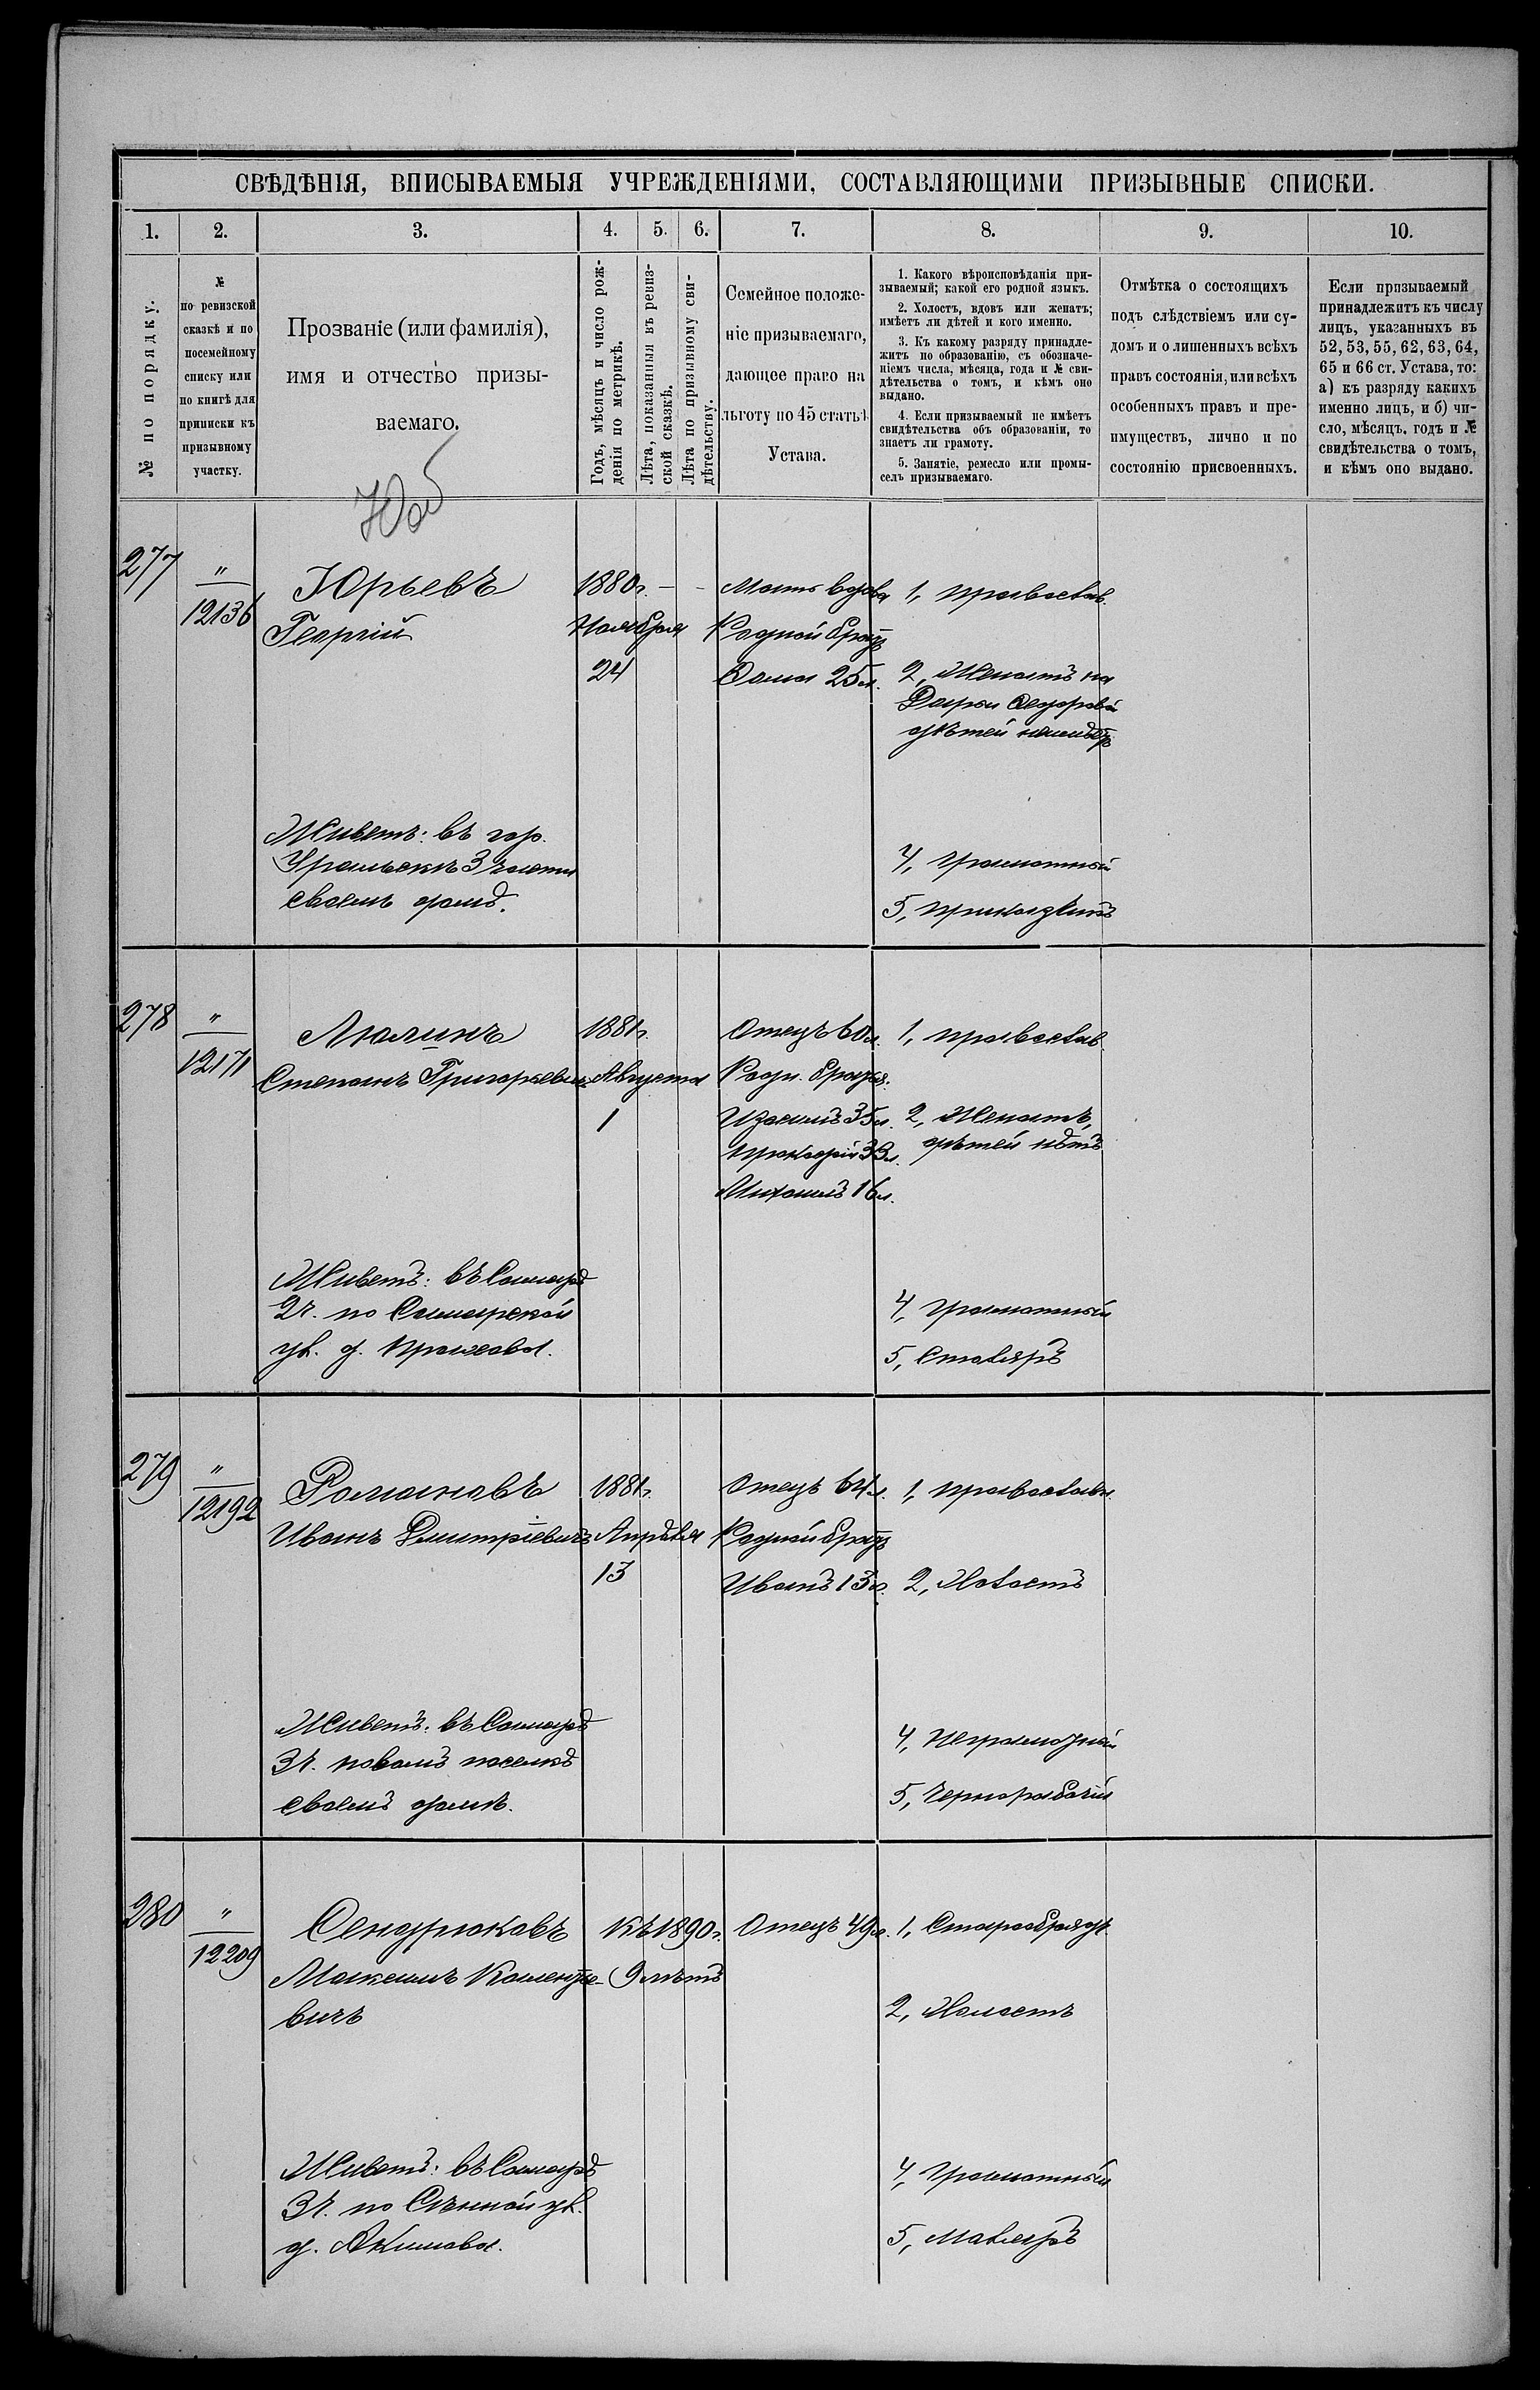 СВѢДѢНІЯ, ВПИСЫВАЕМЫЯ УЧРЕЖДЕНІЯМИ, СОСТАВЛЯЮЩИМИ ПРИЗЫВНЫЕ СПИСКИ.
1. 2. 3. 4. 5. 6. 7. 8. 9. 10.
№ по порядку.
№
по ревизской
сказкѣ и по
посемейному
списку или
по книгѣ для
приписки къ
призывному
участку.
Прозваніе (или фамилія),
имя и отчество призы-
ваемаго.
Годъ, мѣсяцъ и число рож-
денія по метрикѣ.
Лѣта, показанныя въ ревиз-
ской сказкѣ.
Лѣта по призывному сви-
дѣтельству.
Семейное положе-
ніе призываемаго,
дающее право на
льготу по 45 статьѣ
Устава.
1. Какого вѣроисповѣданія при-
зываемый; какой его родной языкъ.
2. Холостъ, вдовъ или женатъ;
имѣетъ ли дѣтей и кого именно.
3. Къ какому разряду принадле-
житъ по образованію, съ обозначе-
ніемъ числа, мѣсяца, года и № сви-
дѣтельства о томъ, и кѣмъ оно
выдано.
4. Если призываемый не имѣетъ
свидѣтельства объ образованіи, то
знаетъ ли грамоту.
5. Занятіе, ремесло или промы-
селъ призываемаго.
Отмѣтка о состоящихъ
подъ слѣдствіемъ или су-
домъ и о лишенныхъ всѣхъ
правъ состоянія, или всѣхъ
особенныхъ правъ и пре-
имуществъ, лично и по
состоянію присвоенныхъ.
Если призываемый
принадлежитъ къ числу
лицъ, указанныхъ въ
52, 53, 55, 62, 63, 64,
65 и 66 ст. Устава, то:
а) къ разряду какихъ
именно лицъ, и б) чи-
сло, мѣсяцъ, годъ и №
свидѣтельства о томъ,
и кѣмъ оно выдано.
277
"
12136
Юрьевъ
Георгій
1880г. - -
Ноября
24
Мать вдова
Родной братъ
25 л.
1, православ.
2, Женатъ на
Дарьи
дѣтей
4, грамотный
5, приказчикъ
Живетъ: въ гор.
Уральскѣ 3 части
своемъ домѣ.
278
"
12171
Люлинъ
Степанъ Григорьевичъ
1881г.
Августа
1
Отецъ 60 л.
Родн. братья:
35 л.
Прокофій 33 л.
Михаилъ 16 л.
1, православ.
2, Женатъ,
дѣтей нѣтъ
4, грамотный
5, Столяръ
Живетъ: въ Самарѣ
2 ч. по Самарской
ул. д.
279
"
12192
Романовъ
Иванъ Дмитріевичъ
1881г.
Апрѣля
13
Отецъ 64 л.
Родной братъ
Иванъ 13 л.
1, православн.
2, Холостъ
4, Неграмотный
5, Чернорабочій
Живетъ: въ Самарѣ
3 ч. новомъ поселкѣ
своемъ домѣ.
280
"
12209
Сендрюковъ
Максимъ Климентье-
вичъ
Къ 1890г.
9 лѣтъ
Отецъ 49 л.
1, Старообрядч.
2, Холостъ
4, грамотный
5, Маляръ
Живетъ: въ Самарѣ
3 ч. по Сѣнной ул.
д. Акимова.